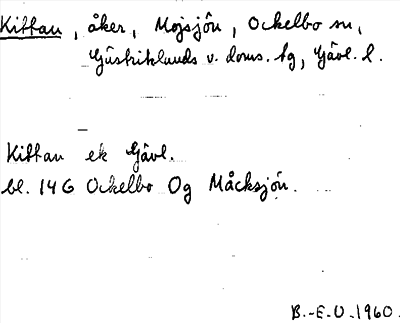 Kittan, åker, Mojsjön, Ockelbo sn,
Gästriklands v. doms. tg, Gävl. l.
Kittan ek Gävl.
bl. 14 G Ockelbo Og Måcksjön.
B.-E.O. 1960.